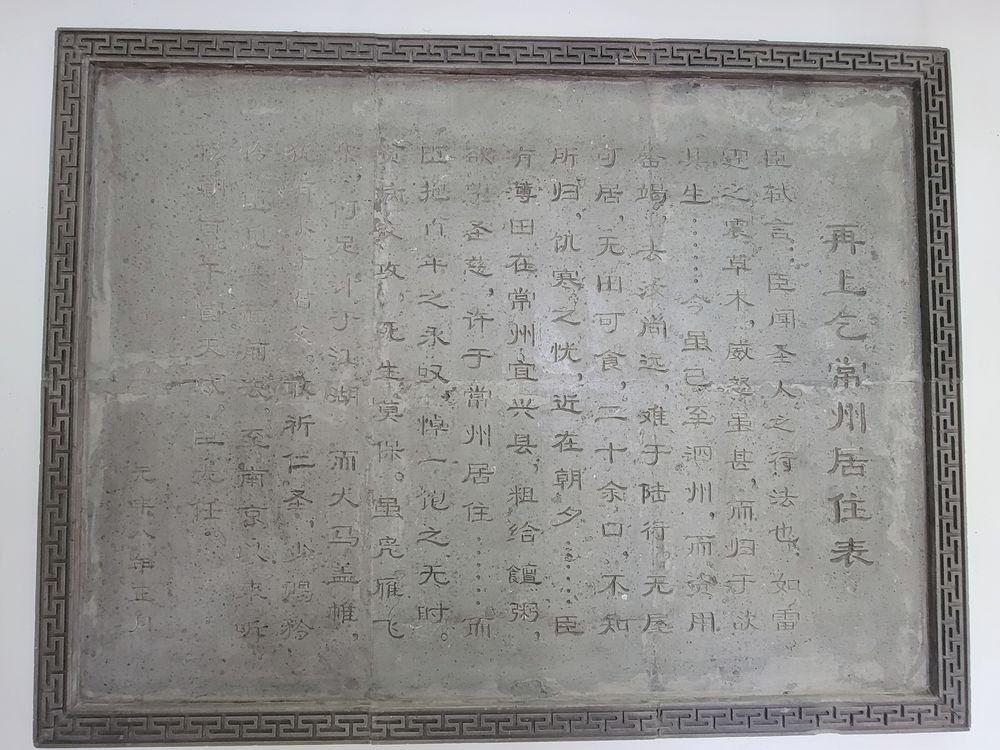 再上乞常州居住表
臣轼言，臣闻圣人之行法也，如雷
霆之震草木，威怒虽甚，而归于欲
其生……今虽已至泗州，而资用
罄竭，去汝尚远，难于陆行。无屋
可居，无田可食，二十余口，不知
所归，饥寒之忧，近在朝夕……臣
有薄田在常州宜兴县，粗给饘粥，
欲望圣慈，许于常州居住……而
臣抱百年之永叹，悼一饱之无时。
贫病交攻，死生莫保。虽凫雁飞
集，何足计于江湖，而犬马盖帷，
犹有求于君父。敢祈仁圣，少赐矜
怜，臣见 前去，至南京以来听
候朝旨。干冒天威，臣无任。
元丰八年正月